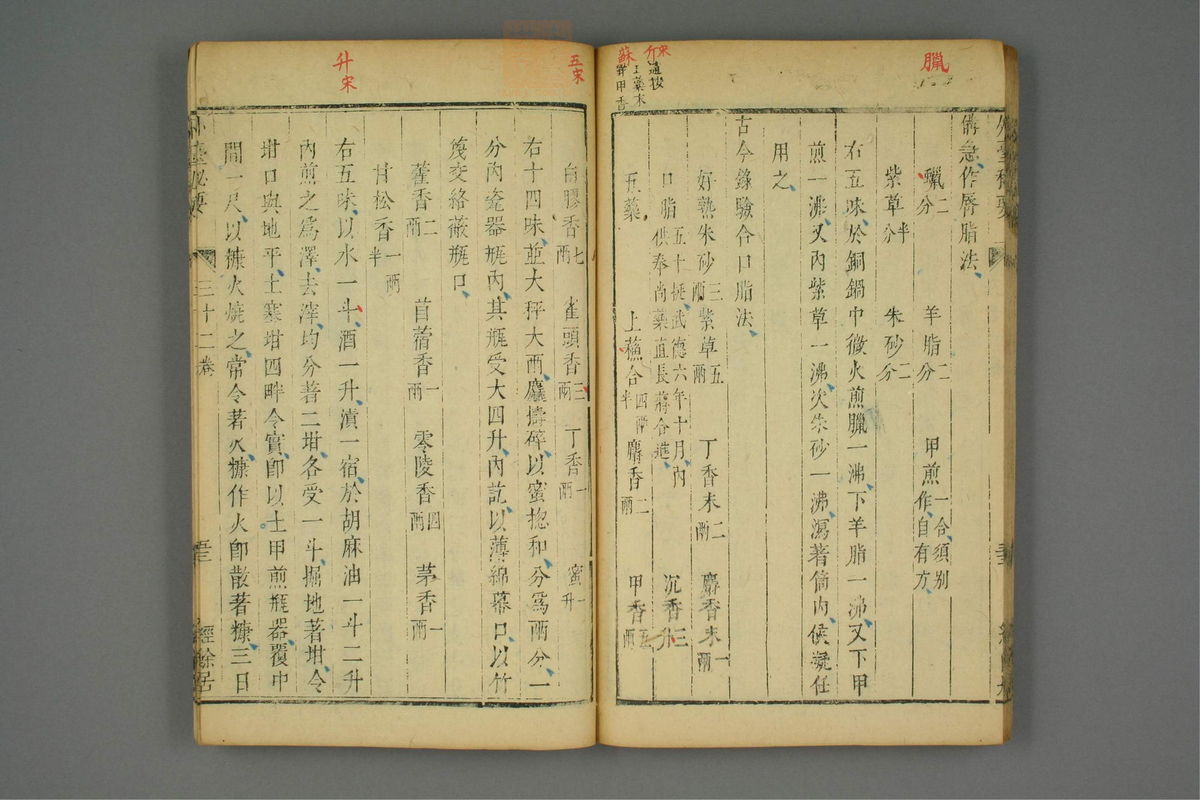 臘
宋
蘇
通按
上藥末
甲香
外臺秘要
備急作唇脂法
蠟二分 羊脂二分 甲煎一合須別作自有方
紫草半分 朱砂二分
右五味於銅鍋中微火煎臘一沸下羊脂一沸又下甲
煎一沸又內紫草一沸次朱砂一沸瀉著筒內候凝任
用之
古今錄驗合口脂法
好熟朱砂三兩 紫草五兩 丁香末二兩 麝香末一兩
口脂五十挺武德六年十月內供奉尚藥直長蔣合進 沉香三升
五藥 上蘓合四兩半 麝香二兩 甲香五兩
五宋
升宋
白膠香七兩 雀頭香三兩 丁香一兩 蜜一升
右十四味並大秤大兩麤擣碎以蜜揔和分爲兩分一
分內瓷器瓶內其瓶受大四升內訖以薄綿幕口以竹
篾交絡蔽瓶口
藿香二兩 苜蓿香一兩 零陵香四兩 茅香一兩
甘松香一兩半
右五味以水一斗酒一升漬一宿於胡麻油一斗二升
內煎之爲澤去滓均分著二坩各受一斗掘地著坩令
坩口與地平土塞坩四畔令實卽以土甲煎瓶器覆中
間一尺以糠火燒之常令著火糠作火卽散著糠三日
外臺秘要 三十二卷 經餘居